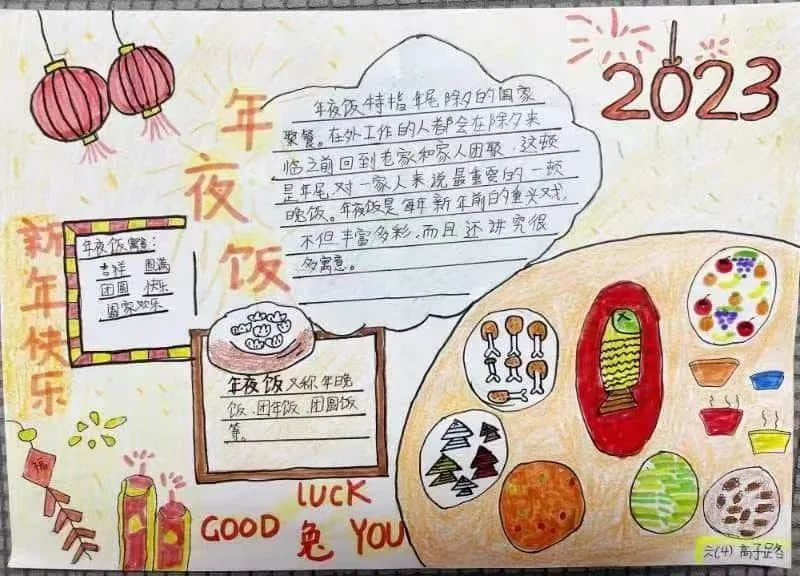 2023
年夜饭
新年快乐
年夜饭特指年尾除夕的阖家
聚餐。在外工作的人都会在除夕来
临之前回到老家和家人团聚,这顿
是年尾对一家人来说最重要的一顿
晚饭。年夜饭是每年新年前的重头戏,
不但丰富多彩,而且还讲究很
多寓意。
年夜饭寓意:
吉祥 圆满
团圆 快乐
阖家欢乐
年夜饭又称年晚
饭、团年饭、团圆饭
等。
福
GOOD LUCK
兔 YOU
六(4) 高子